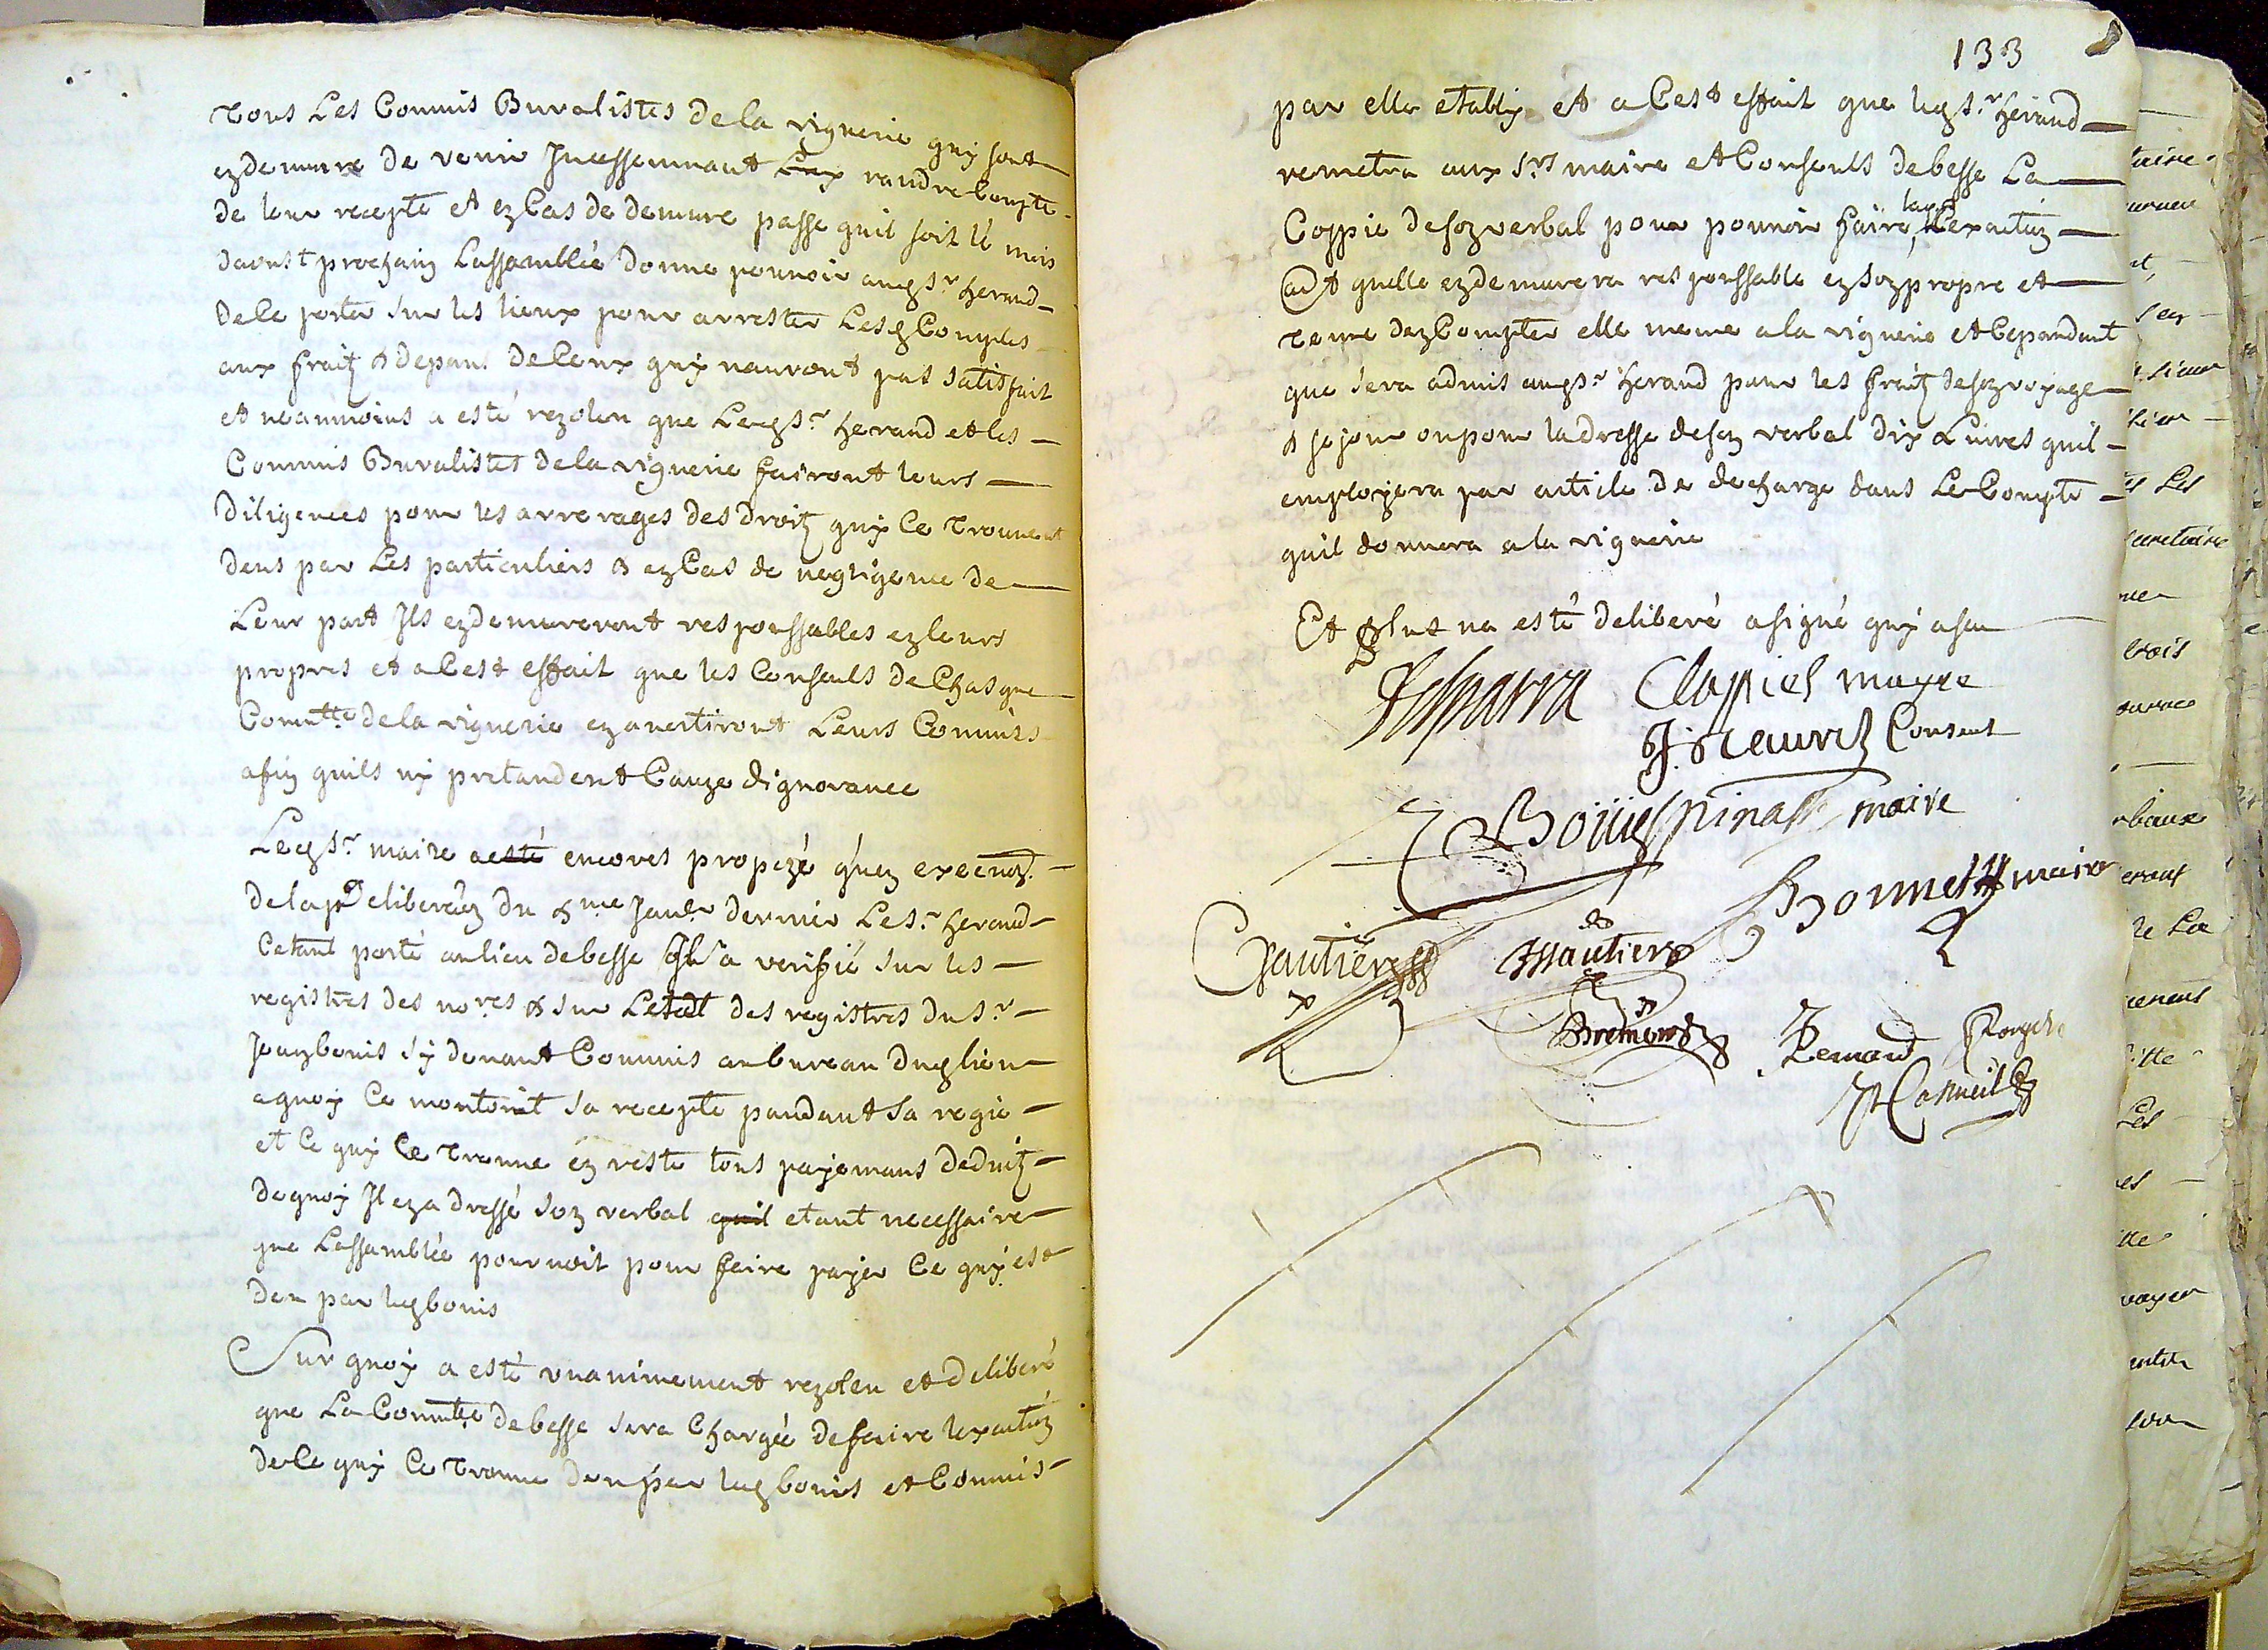 Tous Les Commis Buralistes de la viguerie quy sont
ez demure de venir Jncessemmant randre Compte
de leur recepte et ez Cas de demure passe quil soit le mois
daoust prochain Lassamblée donne pouvoir audt Sr herand
de ce porter sur les lieux pour arrester Lesd Comptes
aux fraitz & depans de Ceux quy nauront pas satisfait
et neanmoins a esté rezoleu que Ledt Sr herand et les
Commis Buralistes de la viguerie fairont leurs
diligences pour les arrerages des droitz quy Ce trouvent
deus par Les particuliers & ez Cas de negligence de
Leur part Jls ez demureront responssables ez leurs
propres et a Cest effait que les Consuls de Chasque
Commtté de la viguerie ez avertiront Leurs Commis
afin quils ny pretandent Cauze dignorance
Ledt Sr maire a esté encores propozé quen execuon
de la pnt deliberaon du 5me Janer dernier Le Sr herand
Cetant porté au lieu de besse Jl a verifié sur les
registres des nores & sur Lestat des registres du Sr
Jouybouis sy devant Commis au bureau dudt lieu
a quoy Ce montoit sa recepte pandant sa regie
et Ce quy Ce trouve en reste tous payemans deduitz
de quoy Jl ez a dressé son verbal quil etant necessaire
que Lassamblée pourvoit pour faire payer Ce quy est
deu par ledt bouis
Sur quoy a esté unanimement rezoleu et deliberé
que La Commtté de besse sera Chargée de faire lexaction
de Ce quy Ce trouve deu par ledt bouis et Commis
133
par elle etably et a Cest effait que ledt Sr herand
remetra aux Srs maire et Consuls de besse La
Coppie de son verbal pour pouvoir faire Lexaction
quelle ez demurera responssable ez son propre et
tenue dez Compter elle meme a la viguerie et Cepandant
que sera admis audt Sr herand pour les fraitz de son voyage
& sejour ou pour ladresse de son verbal dix Livres quil
employera par article de decharge dans Le Compte
quil donnera a la viguerie
Et plus na esté deliberé a signé quy a seu
Clapiel mayre
Consul
maire
Gautier
Bonnet maire
Gautier
Bremond